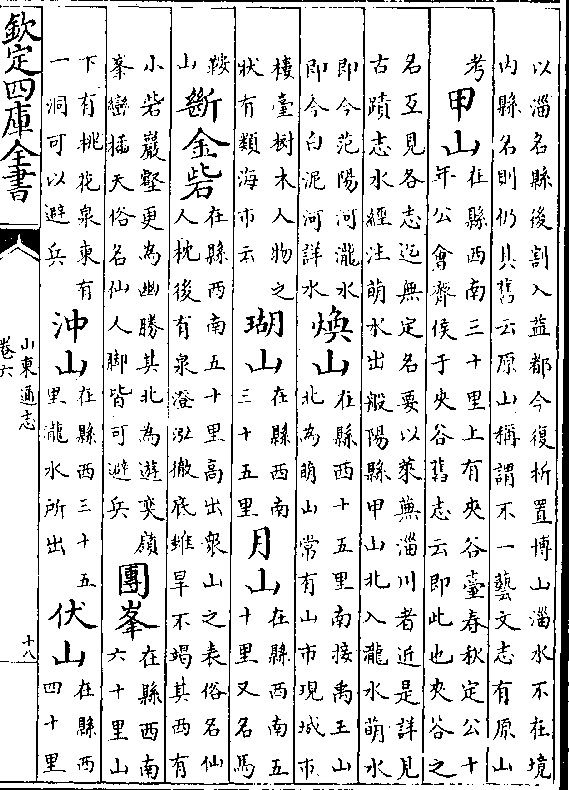 以淄名縣後割入益都今復析置博山淄水不在境
内縣名則仍其舊云原山稱謂不一藝文志有原山
考
甲山
在縣西南三十里上有夾谷臺春秋定公十
年公會齊侯于夾谷舊志云即此也夾谷之
名互見各志迄無定名要以萊蕪淄川者近是詳見
古蹟志水經注萌水出般陽縣甲山北入瀧水萌水
即今范陽河瀧水
即今白泥河詳水
煥山
在縣西十五里南接禹王山
北為萌山常有山市現城市
樓臺樹木人物之
狀有類海市云
瑚山
在縣西南
三十五里
月山
在縣西南五
十里又名馬
鞍
山
斷金砦
在縣西南五十里高出衆山之表俗名仙
人枕後有泉澄泓徹底雖旱不竭其西有
小砦巖壑更為幽勝其北為遊奕嶺
峯巒插天俗名仙人脚皆可避兵
團峯
在縣西南
六十里山
下有桃花泉東有
一洞可以避兵
沖山
在縣西三十五
里瀧水所出
伏山
在縣西
四十里
欽定四庫全書
山東通志
卷六
十八